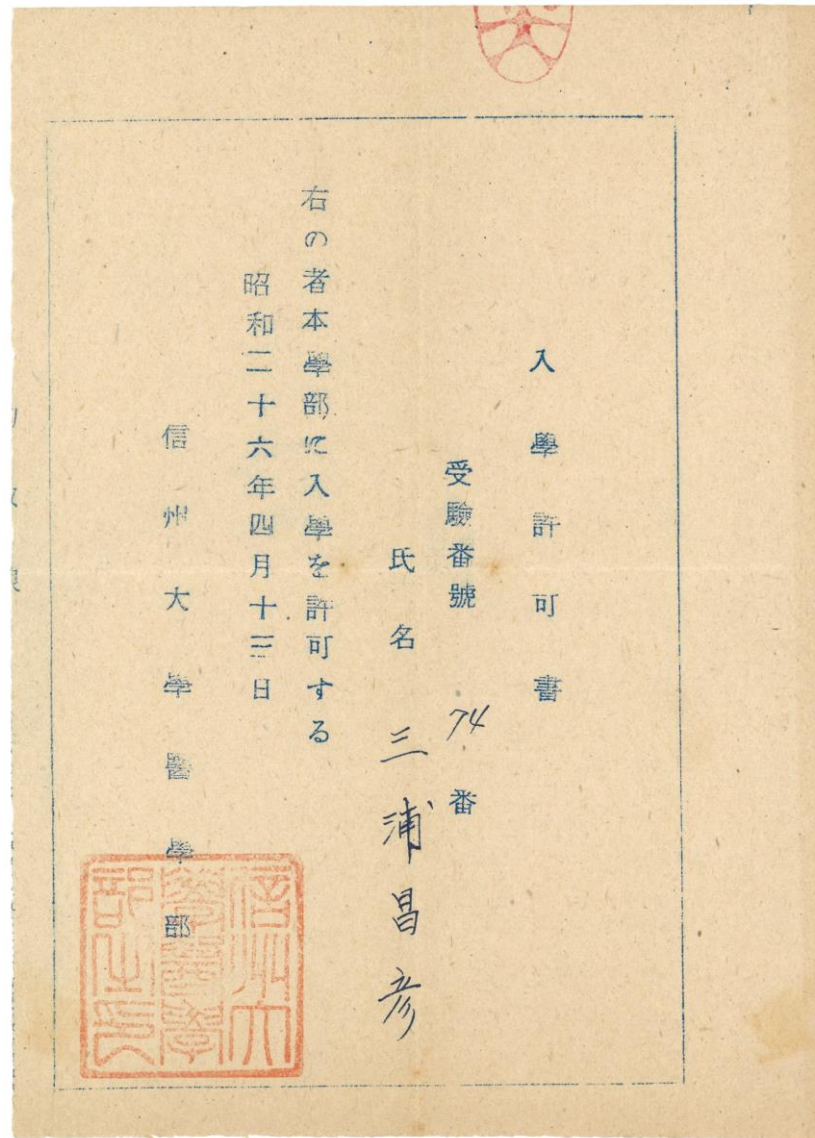 入學許可書
受驗番號 74番
氏名 三浦昌彦
右の者本學部に入學を許可する
昭和二十六年四月十三日
信州大學醫學部
信州大學醫學部之印